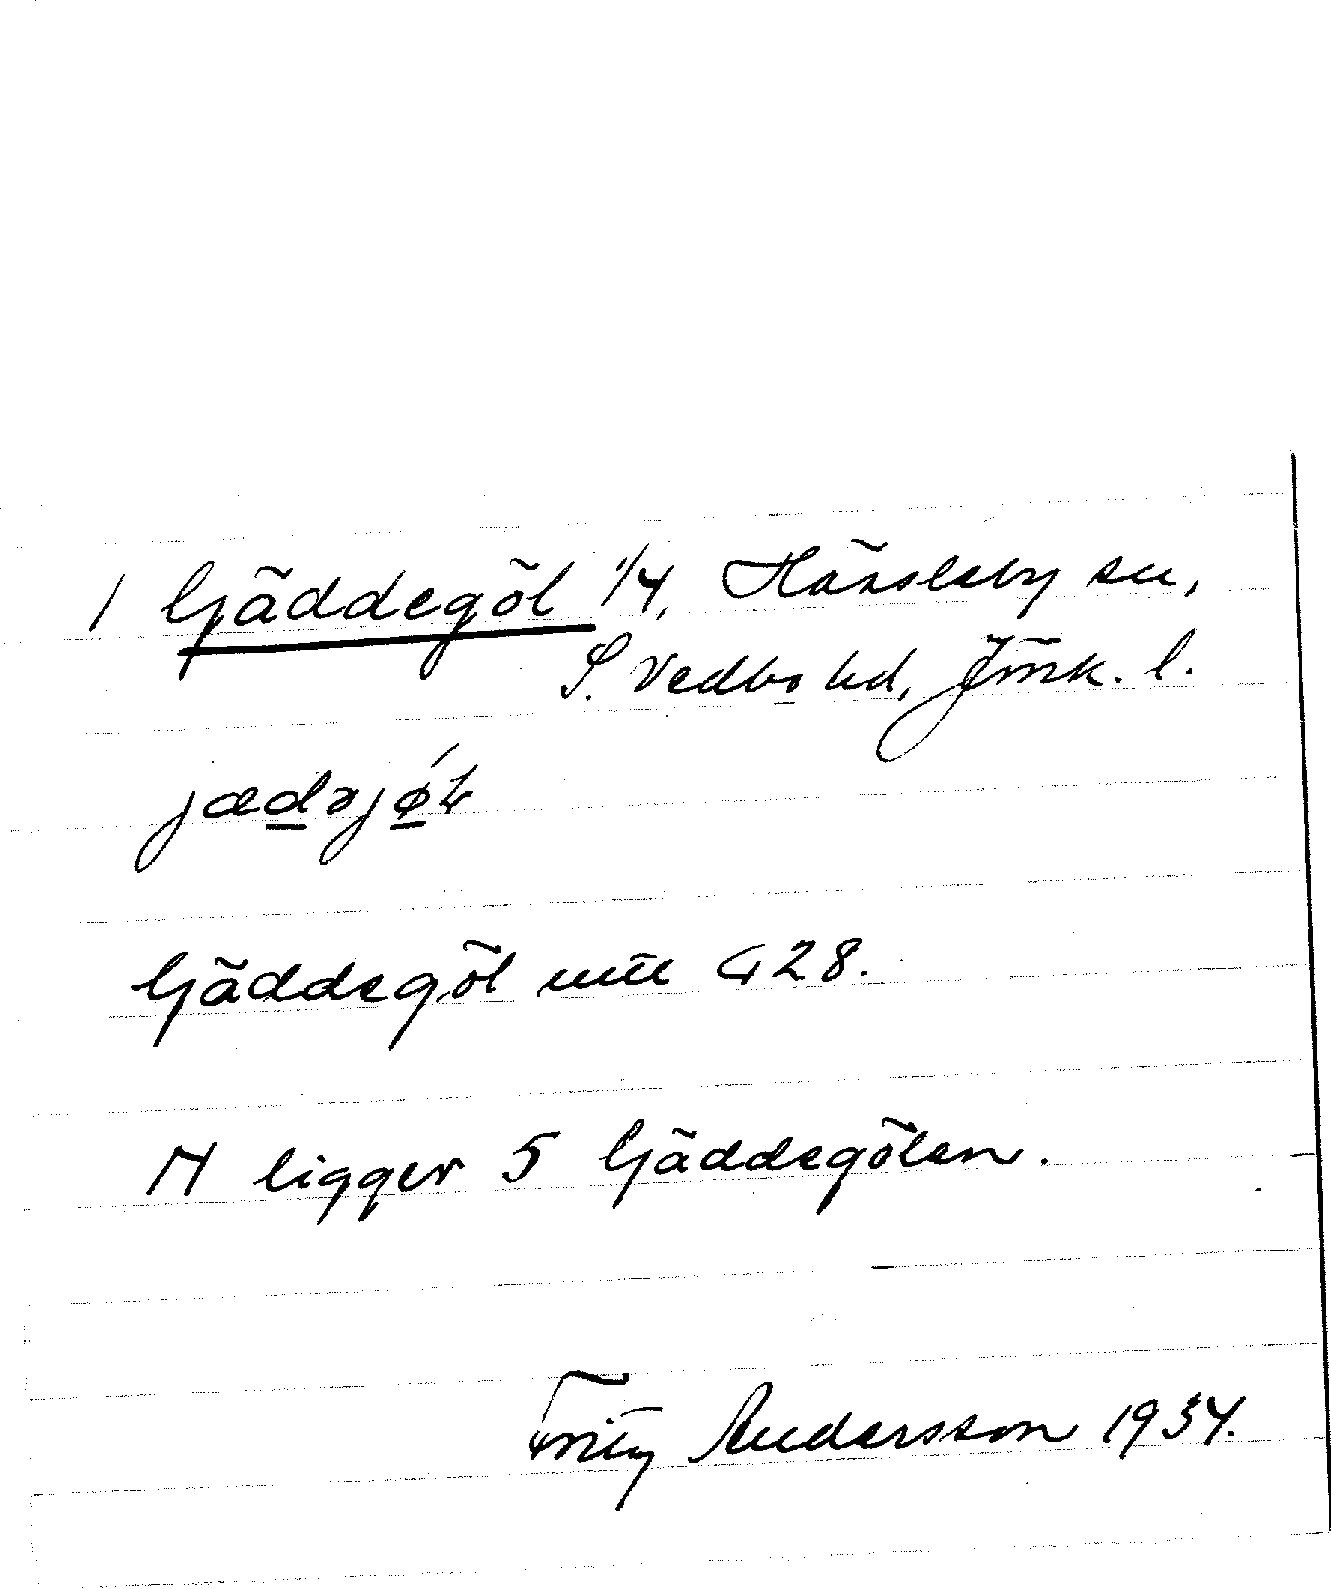 1 Gäddegöl 1/4, Hässleby sn,
S. Vedbo hd, Jönk. l.
jædəjǿɫ
Gäddegöl mtl G 28.
H ligger 5 Gäddegölen.
Fritz Andersson 1934.